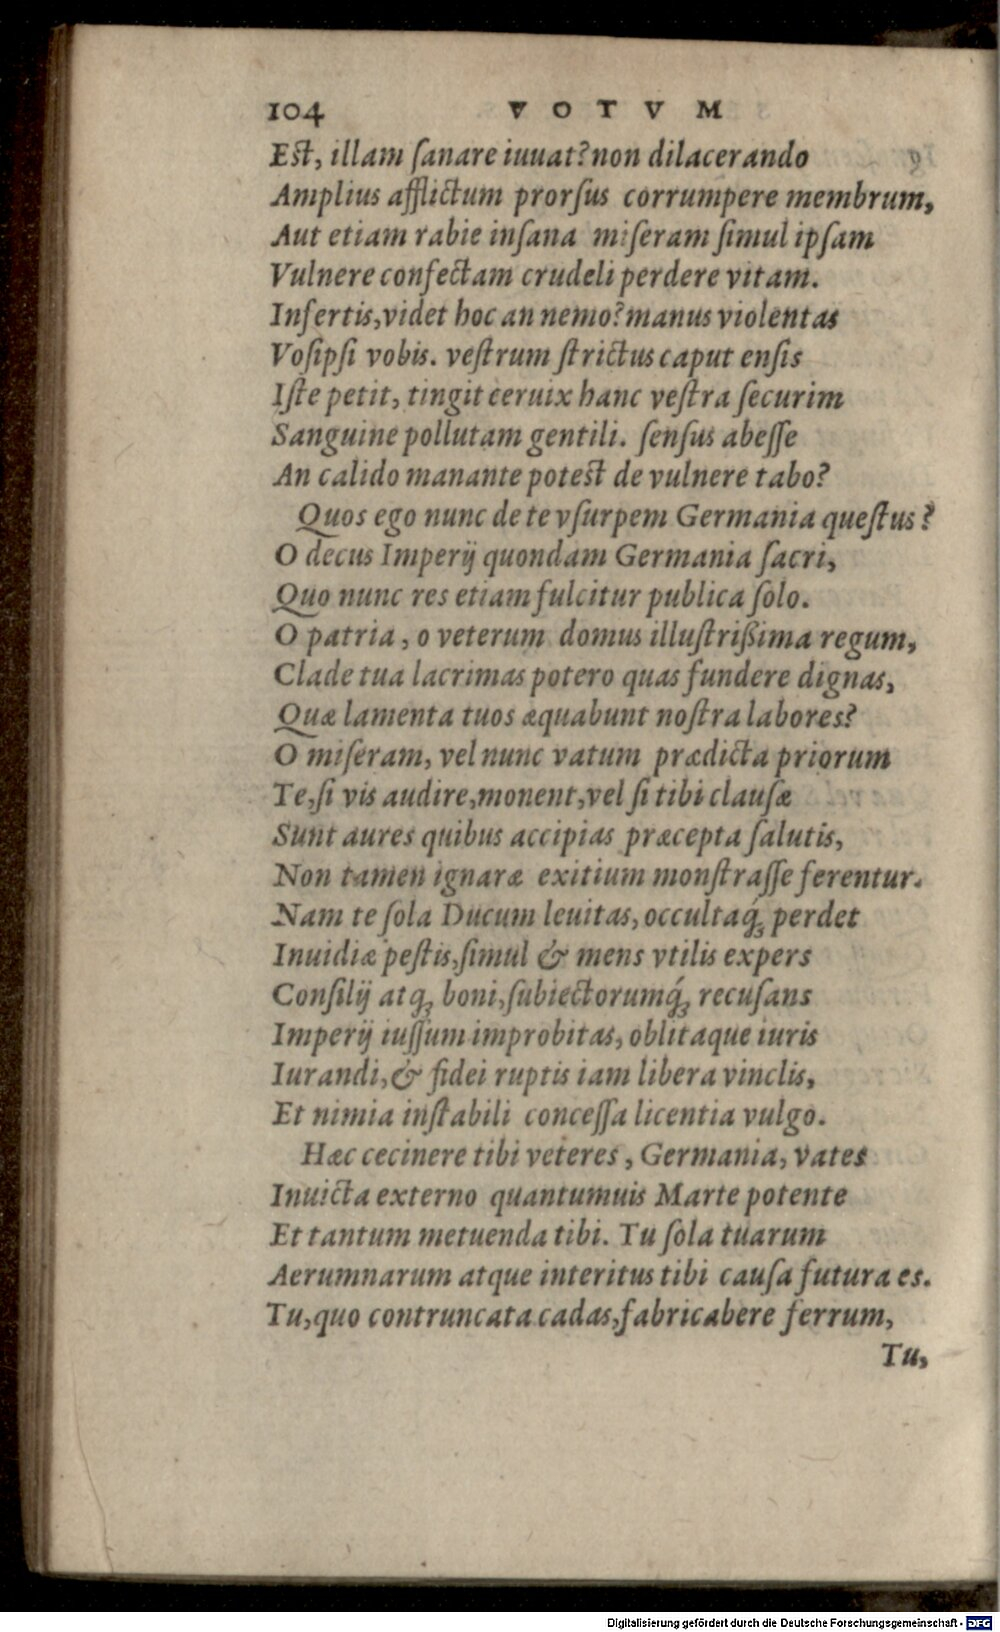 104 VOTVM
Est, illam ſanare iuuat? non dilacerando
Amplius afflictum prorſus corrumpere membrum,
Aut etiam rabie inſana miſeram ſimul ipſam
Vulnere confectam crudeli perdere vitam.
Infertis, videt hoc an nemo? manus violentas
Voſipſi vobis. veſtrum ſtrictus caput enſis
Iſte petit, tingit ceruix hanc veſtra ſecurim
Sanguine pollutam gentili. ſenſus abeſſe
An calido manante potest de vulnere tabo?
Quos ego nunc de te vſurpem Germania queſtus?
O decus Imperij quondam Germania ſacri,
Quo nunc res etiam fulcitur publica ſolo.
O patria, o veterum domus illuſtrißima regum,
Clade tua lacrimas potero quas fundere dignas,
Quæ lamenta tuos æquabunt noſtra labores?
O miſeram, vel nunc vatum prædicta priorum
Te, ſi vis audire, monent, vel ſi tibi clauſæ
Sunt aures quibus accipias præcepta ſalutis,
Non tamen ignaræ exitium monſtraſſe ferentur.
Nam te ſola Ducum leuitas, occultaq́; perdet
Inuidiæ peſtis, ſimul & mens vtilis expers
Conſilij atq; boni, ſubiectorumq́; recuſans
Imperij iuſſum improbitas, oblitaque iuris
Iurandi, & fidei ruptis iam libera vinclis,
Et nimia inſtabili conceſſa licentia vulgo.
Hæc cecinere tibi veteres, Germania, vates
Inuicta externo quantumuis Marte potente
Et tantum metuenda tibi. Tu ſola tuarum
Aerumnarum atque interitus tibi cauſa futura es.
Tu, quo contruncata cadas, fabricabere ferrum,
Tu,
Digitalisierung gefördert durch die Deutsche Forschungsgemeinschaft - DFG